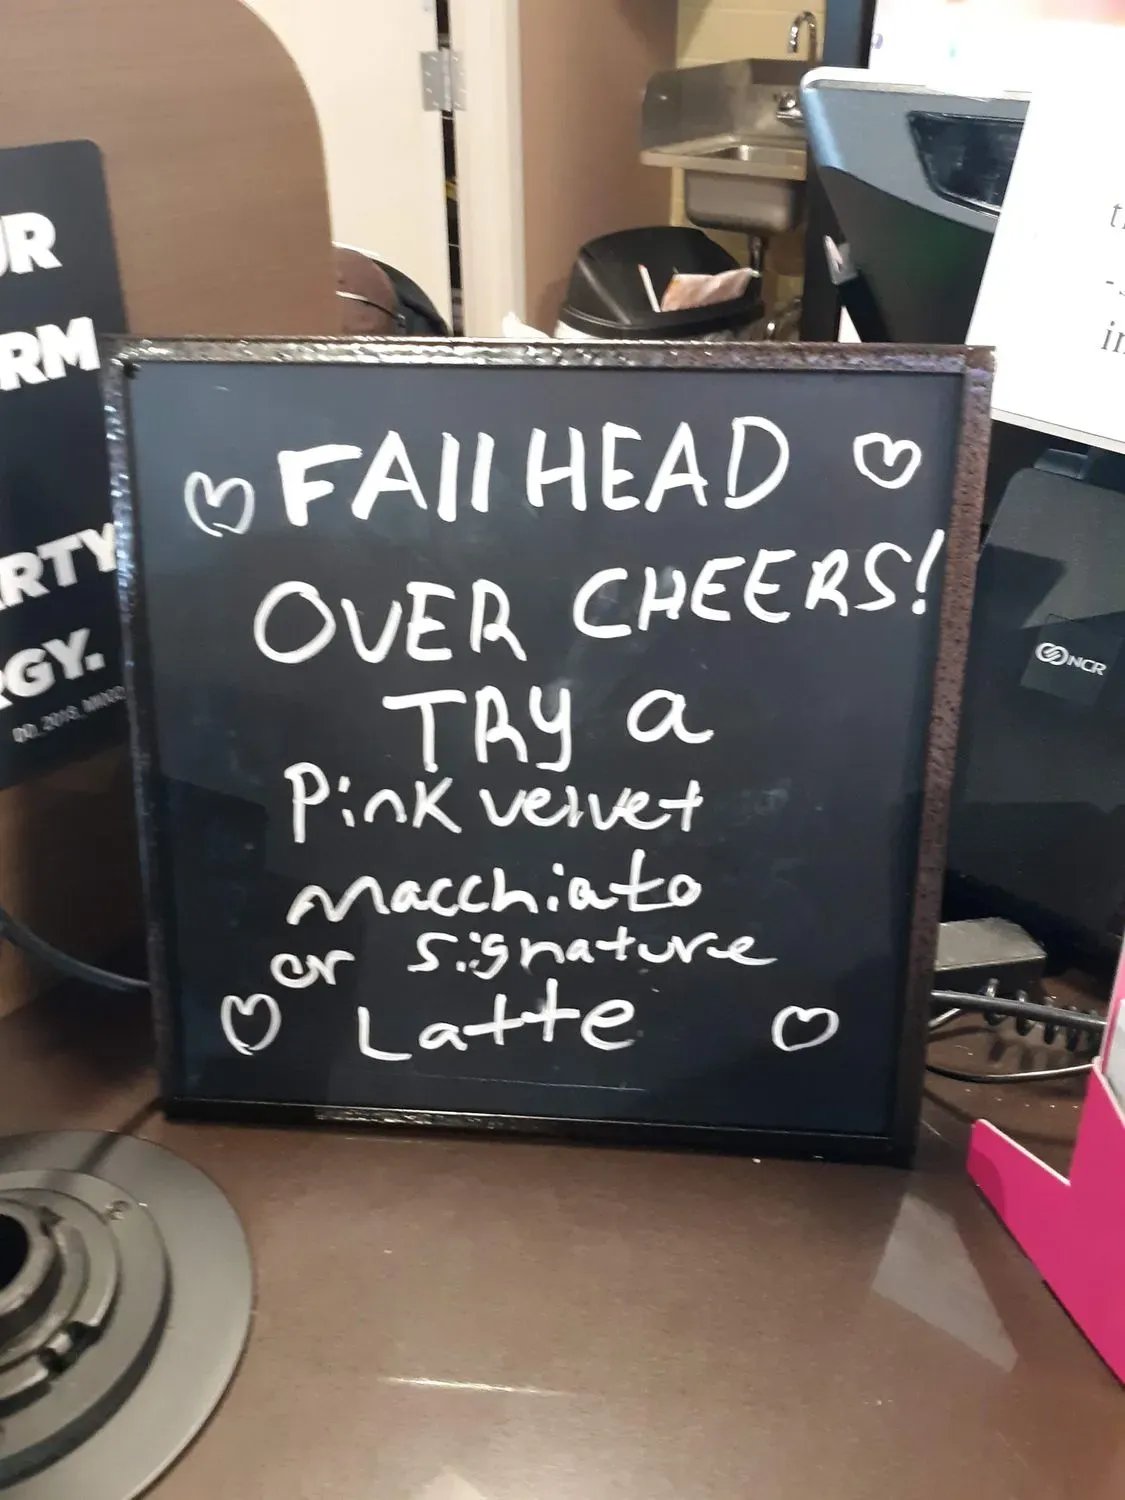 UR
RM
RTY
RGY.
FAll HEAD
OVER CHEERS!
TRY a
Pink velvet
macchiato
or signature
Latte
NCR